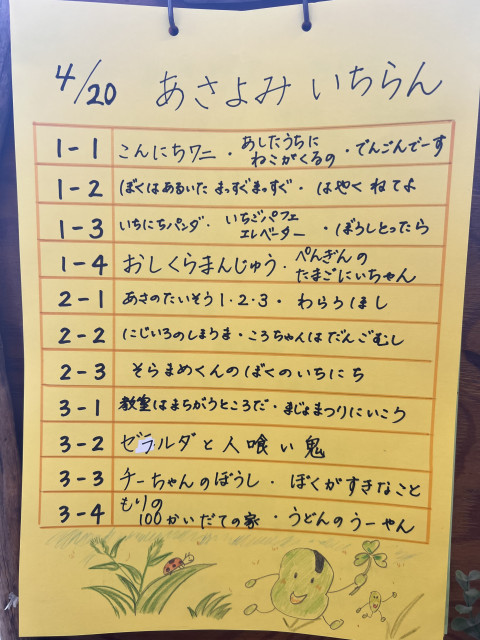 4/20 あさよみ いちらん
1-1 こんにちワニ・あしたうちにねこがくるの・でんごんでーす
1-2 ぼくはあるいた まっすぐまっすぐ・はやくねてよ
1-3 いちにちパンダ・いちごパフェエレベーター・ぼうしとったら
1-4 おしくらまんじゅう・ぺんぎんのたまごにいちゃん
2-1 あさのたいそう1・2・3・わらうほし
2-2 にじいろのしまうま・ころちゃんはだんごむし
2-3 そらまめくんのぼくのいちにち
3-1 教室はまちがうところだ・まじょまつりにいこう
3-2 ゼラルダと人喰い鬼
3-3 チーちゃんのぼうし・ぼくがすきなこと
3-4 もりの100かいだての家・うどんのうーやん